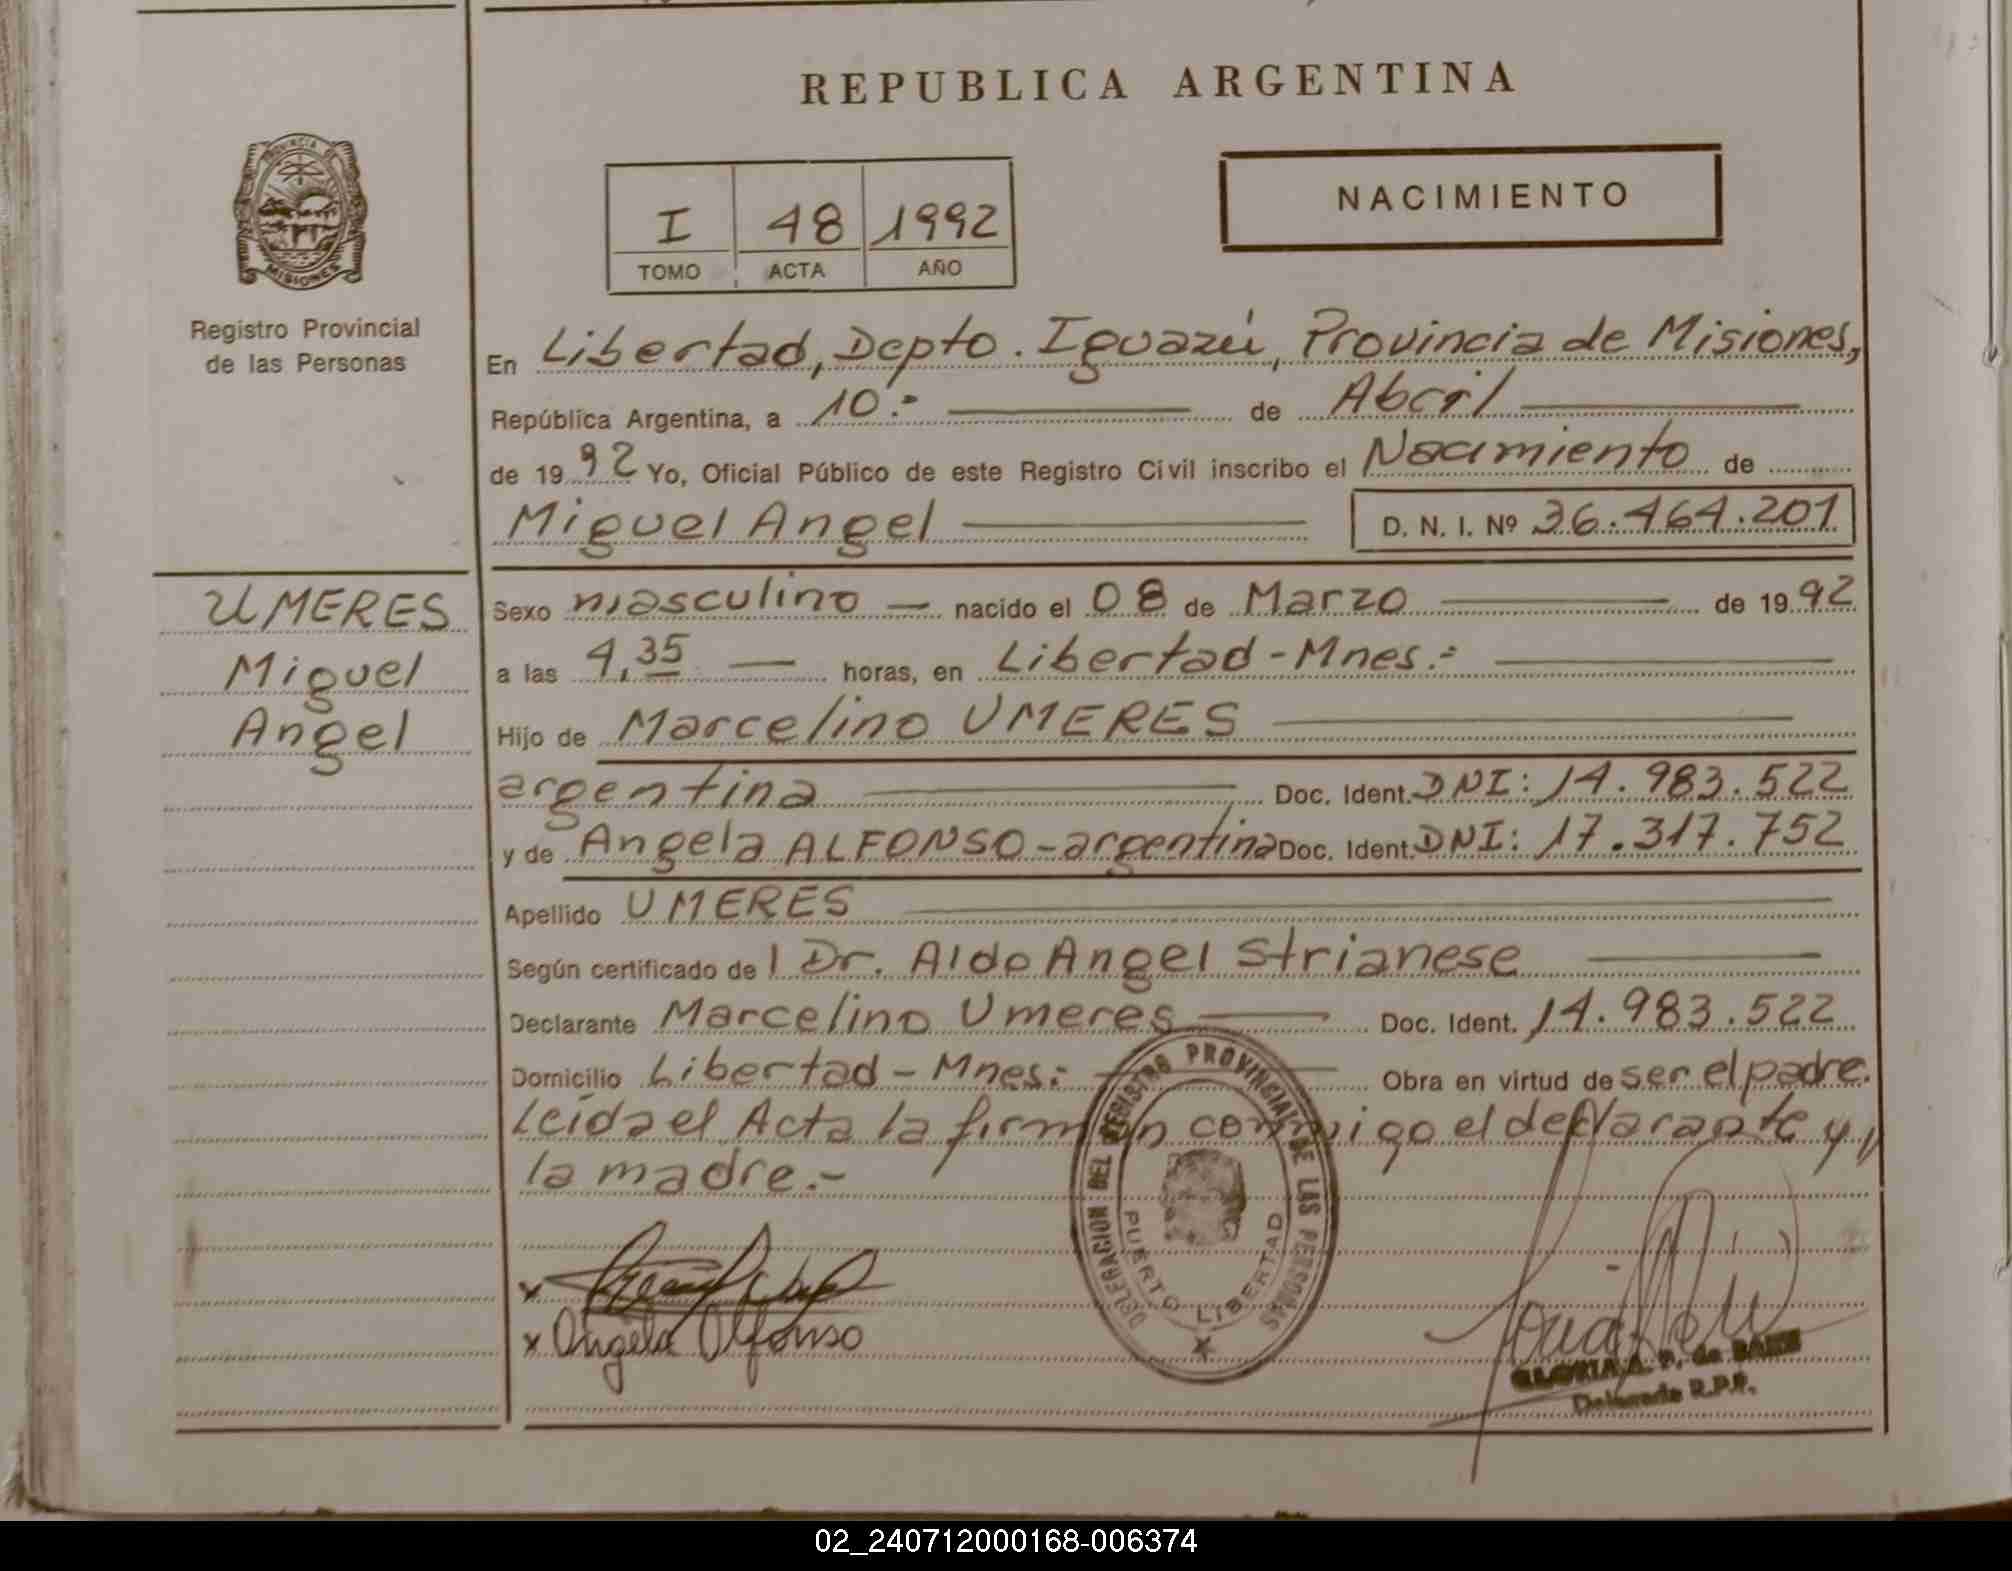 REPUBLICA ARGENTINA
PROVINCIA DE
MISIONES
Registro Provincial
de las Personas
I 48 1992
TOMO ACTA AÑO
NACIMIENTO
En Libertad, Depto. Iguazú, Provincia de Misiones,
República Argentina, a 10.- de Abril
de 1992 Yo, Oficial Público de este Registro Civil inscribo el Nacimiento de
Miguel Angel D. N. I. Nº 36.464.201
UMERES
Miguel
Angel
Sexo masculino nacido el 08 de Marzo de 1992
a las 4,35 horas, en Libertad - Mnes.-
Hijo de Marcelino UMERES
argentina Doc. Ident. DNI: 14.983.522
y de Angela ALFONSO - argentina Doc. Ident. DNI: 17.317.752
Apellido UMERES
Según certificado del Dr. Aldo Angel Strianese
Declarante Marcelino Umeres Doc. Ident. 14.983.522
Domicilio Libertad - Mnes.- Obra en virtud de ser el padre.
Leída el Acta la firman conmigo el declarante y
la madre.-
DELEGACION DEL REGISTRO PROVINCIAL DE LAS PERSONAS
PUERTO LIBERTAD
x
x Angela Alfonso
GLORIA A. P. de
Delegada R.P.P.
02_240712000168-006374